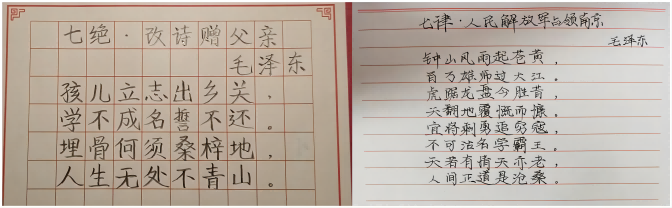 七绝·改诗赠父亲
毛泽东
孩儿立志出乡关，
学不成名誓不还。
埋骨何须桑梓地，
人生无处不青山。
七律·人民解放军占领南京
毛泽东
钟山风雨起苍黄，
百万雄师过大江。
虎踞龙盘今胜昔，
天翻地覆慨而慷。
宜将剩勇追穷寇，
不可沽名学霸王。
天若有情天亦老，
人间正道是沧桑。